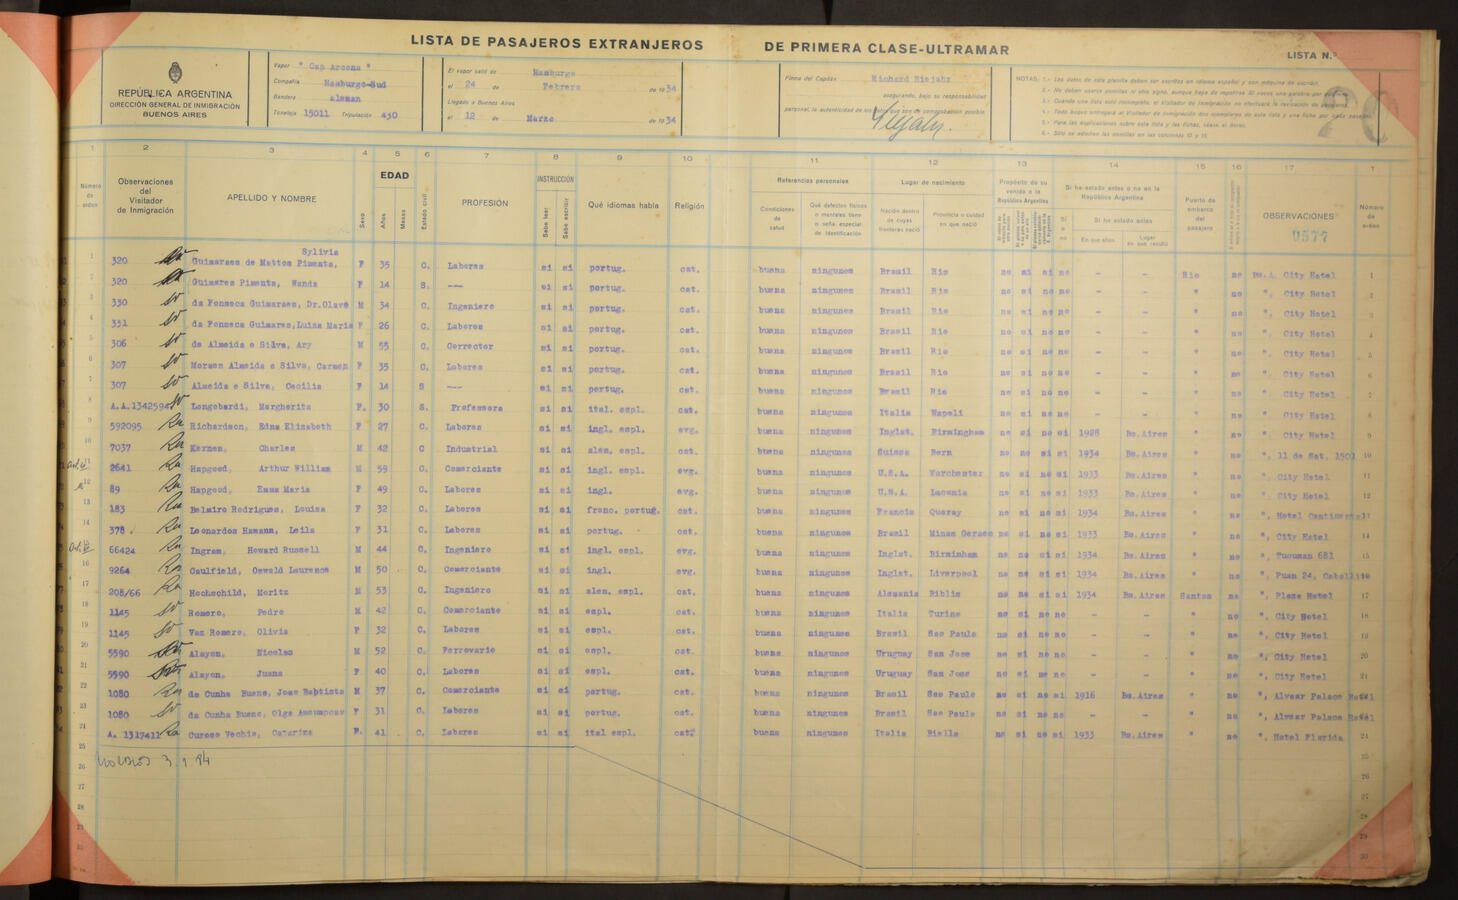 LISTA DE PASAJEROS EXTRANJEROS DE PRIMERA CLASE-ULTRAMAR
LISTA N.º
REPÚBLICA ARGENTINA
DIRECCIÓN GENERAL DE INMIGRACIÓN
BUENOS AIRES
Vapor "Cap Arcona"
Compañía Hamburgo-Sud
Bandera aleman
Tonelaje 15011 Tripulación 430
El vapor salió de Hamburgo
el 24 de Febrero de 1934
Llegado a Buenos Aires
el 12 de Marzo de 1934
Firma del Capitán Richard Niejahr
asegurando, bajo su responsabilidad
personal, la autenticidad de los
Niejahr.
NOTAS: 1.- Los datos de esta planilla deben ser escritos en idioma español y con máquina de escribir.
20
1 2 3 4 5 6 7 8 9 10 11 12 13 14 15 16 17 1
Número de orden
Observaciones del Visitador de Inmigración
APELLIDO Y NOMBRE
Sexo
EDAD
Años
Meses
Estado civil
PROFESIÓN
INSTRUCCIÓN
Sabe leer
Sabe escribir
Qué idiomas habla
Religión
Referencias personales
Condiciones de salud
Qué defectos físicos o mentales tiene o seña especial de identificación
Lugar de nacimiento
Nación dentro de cuyas fronteras nació
Provincia o ciudad en que nació
Propósito de su venida a la República Argentina
Si ha estado antes o no en la República Argentina
Si ha estado antes
En que años
Lugar en que residió
Puerto de embarco del pasajero
OBSERVACIONES
0577
Número de orden
Sylivia
1 320 Guimaraes de Mattos Pimenta, F 35 C. Labores si si portug. cat. buena ningunos Brasil Rio no si si no - - Rio no Bs.A. City Hotel 1
2 320 Guimares Pimenta, Wanda F 14 S. -- si si portug. cat. buena ningunos Brasil Rio no si no no - - " no ", City Hotel 2
3 330 da Fonseca Guimaraes, Dr.Olavo M 34 C. Ingeniero si si portug. cat. buena ningunos Brasil Rio no si no no - - " no ", City Hotel 3
4 331 da Fonseca Guimares,Luisa Maria F 26 C. Labores si si portug. cat. buena ningunos Brasil Rio no si no no - - " no ", City Hotel 4
5 306 de Almeida e Silva, Ary M 55 C. Corrector si si portug. cat. buena ningunos Brasil Rio no si no no - - " no ", City Hotel 5
6 307 Moraes Almeida e Silva, Carmen F 35 C. Labores si si portug. cat. buena ningunos Brasil Rio no si no no - - " no ", City Hotel 6
7 307 Almeida e Silva, Cecilia F 14 S -- si si portug. cat. buena ningunos Brasil Rio no si no no - - " no ", City Hotel 7
8 A.A.1342594 Longobardi, Margherita F. 30 S. Professora si si ital. espl. cat. buena ningunos Italia Napoli no si no no - - " no ", City Hotel 8
9 592095 Richardson, Edna Elizabeth F 27 C. Labores si si ingl. espl. evg. buena ningunos Inglat. Birmingham no si no si 1928 Bs.Aires " no ", City Hotel 9
10 7037 Kernen, Charles M 42 C Industrial si si alem. espl. cat. buena ningunos Suissa Bern no no si si 1934 Bs.Aires " no ", 11 de Set. 1501 10
11 2641 Hapgood, Arthur William M 59 C. Comerciante si si ingl. espl. evg. buena ningunos U.S.A. Worchester no si no si 1933 Bs.Aires " no ", City Hotel 11
12 89 Hapgood, Emma Maria F 49 C. Labores si si ingl. evg. buena ningunos U.S.A. Laconia no si no si 1933 Bs.Aires " no ", City Hotel 12
13 183 Belairo Rodrigues, Louisa F 32 C. Labores si si franc. portug. cat. buena ningunos Francia Quaray no si no si 1934 Bs.Aires " no ", Hotel Continental 13
14 378 Leonardos Hamann, Leila F 31 C. Labores si si portug. cat. buena ningunos Brasil Minas Geraes no si no si 1933 Bs.Aires " no ", City Hotel 14
15 66424 Ingram, Howard Ruswell M 44 C. Ingeniero si si ingl. espl. evg. buena ningunos Inglat. Birminham no no si si 1934 Bs.Aires " no ", Tucuman 681 15
16 9264 Caulfield, Oswald Laurence M 50 C. Comerciante si si ingl. evg. buena ningunos Inglat. Liverpool no no si si 1934 Bs.Aires " no ", Puan 24, Caballito 16
17 208/66 Hochschild, Moritz M 53 C. Ingeniero si si alem. espl. cat. buena ningunos Alemania Biblis no no si si 1934 Bs.Aires Santos no ", Plaza Hotel 17
18 1145 Romero, Pedro M 42 C. Comerciante si si espl. cat. buena ningunos Italia Turino no si no no - - " no ", City Hotel 18
19 1145 Vaz Romero, Olivia F 32 C. Labores si si espl. cat. buena ningunos Brasil Sao Paulo no si no no - - " no ", City Hotel 19
20 5590 Alayon, Nicolas M 52 C. Ferrovario si si espl. cat. buena ningunos Uruguay San Jose no si no no - - " no ", City Hotel 20
21 5590 Alayon, Juana F 40 C. Labores si si espl. cat. buena ningunos Uruguay San Jose no si no no - - " no ", City Hotel 21
22 1080 da Cunha Bueno, Jose Baptista M 37 C. Comerciante si si portug. cat. buena ningunos Brasil Sao Paulo no si no si 1916 Bs.Aires " no ", Alvear Palace Hotel
23 1080 da Cunha Bueno, Olga Assumpcao F 31 C. Labores si si portug. cat. buena ningunos Brasil Sao Paulo no si no no - - " no ", Alvear Palace Hotel
24 A. 1317411 Curoso Vechia, Catarina F. 41 C. Labores si si ital espl. cat. buena ningunos Italia Biella no si no si 1933 Bs.Aires " no ", Hotel Florida 24
25 25
26 26
27 27
28 28
29 29
30 30